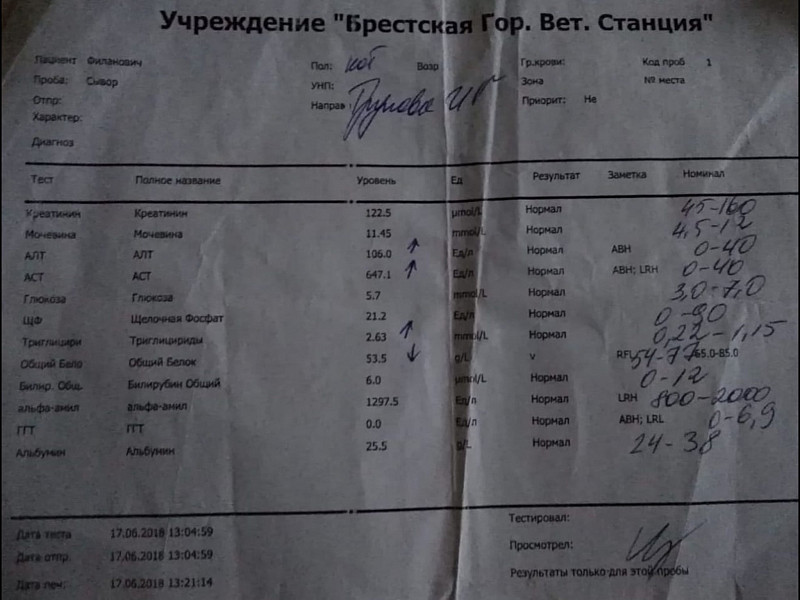 Учреждение "Брестская Гор. Вет. Станция"
Пациент Филанович Пол: кот Возр Гр.крови: Код проб 1
Проба: Сывор УНП: Зона № места
Отпр: Направ Приорит: Не
Характер:
Диагноз
Тест Полное название Уровень Ед Результат Заметка Номинал
Креатинин Креатинин 122.5 µmol/L Нормал 45-160
Мочевина Мочевина 11.45 mmol/L Нормал 4,5-12
АЛТ АЛТ 106.0 ↑ Ед/л Нормал ABH 0-40
АСТ АСТ 647.1 ↑ Ед/л Нормал ABH; LRH 0-40
Глюкоза Глюкоза 5.7 mmol/L Нормал 3,0-7,0
ЩФ Щелочная Фосфат 21.2 Ед/л Нормал 0-90
Триглицири Триглицириды 2.63 ↑ mmol/L Нормал 0,22-1,15
Общий Бело Общий Белок 53.5 ↓ g/L v 54-77 65.0-85.0
Билир. Общ. Билирубин Общий 6.0 µmol/L Нормал 0-12
альфа-амил альфа-амил 1297.5 Ед/л Нормал LRH 800-2000
ГГТ ГГТ 0.0 Ед/л Нормал ABH; LRL 0-6,9
Альбумин Альбумин 25.5 g/L Нормал 24-38
Дата теста 17.06.2018 13:04:59 Тестировал:
Дата отпр 17.06.2018 13:04:59 Просмотрел:
Дата печ: 17.06.2018 13:21:14 Результаты только для этой пробы